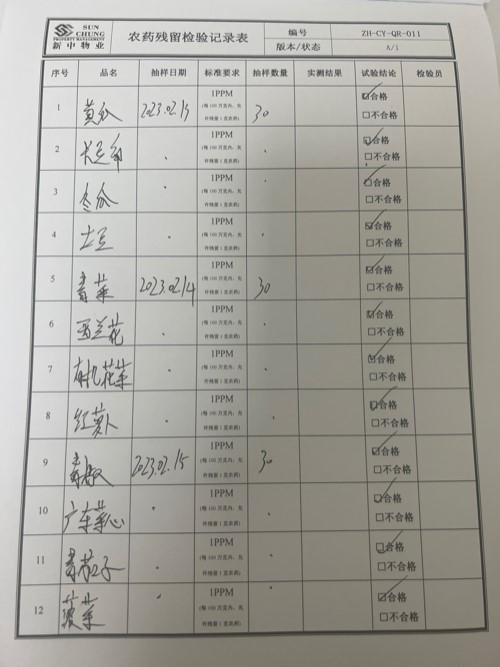 SUN CHUNG
PROPERTY MANAGEMENT
新中物业
农药残留检验记录表
编号 ZH-CY-QR-011
版本/状态 A/1
序号 品名 抽样日期 标准要求 抽样数量 实测结果 试验结论 检验员
1 黄瓜 2023.02.13 1PPM 30 ☑合格
(每100万克内,允许残留1克农药) □不合格
2 长豆角 · 1PPM · ☑合格
(每100万克内,允许残留1克农药) □不合格
3 冬瓜 · 1PPM · ☑合格
(每100万克内,允许残留1克农药) □不合格
4 土豆 · 1PPM · ☑合格
(每100万克内,允许残留1克农药) □不合格
5 青菜 2023.02.14 1PPM 30 ☑合格
(每100万克内,允许残留1克农药) □不合格
6 西兰花 · 1PPM · ☑合格
(每100万克内,允许残留1克农药) □不合格
7 有机花菜 · 1PPM · ☑合格
(每100万克内,允许残留1克农药) □不合格
8 红萝卜 · 1PPM · ☑合格
(每100万克内,允许残留1克农药) □不合格
9 青椒 2023.02.15 1PPM 30 ☑合格
(每100万克内,允许残留1克农药) □不合格
10 广东菜心 · 1PPM · ☑合格
(每100万克内,允许残留1克农药) □不合格
11 青茄子 · 1PPM · ☑合格
(每100万克内,允许残留1克农药) □不合格
12 菠菜 · 1PPM · ☑合格
(每100万克内,允许残留1克农药) □不合格